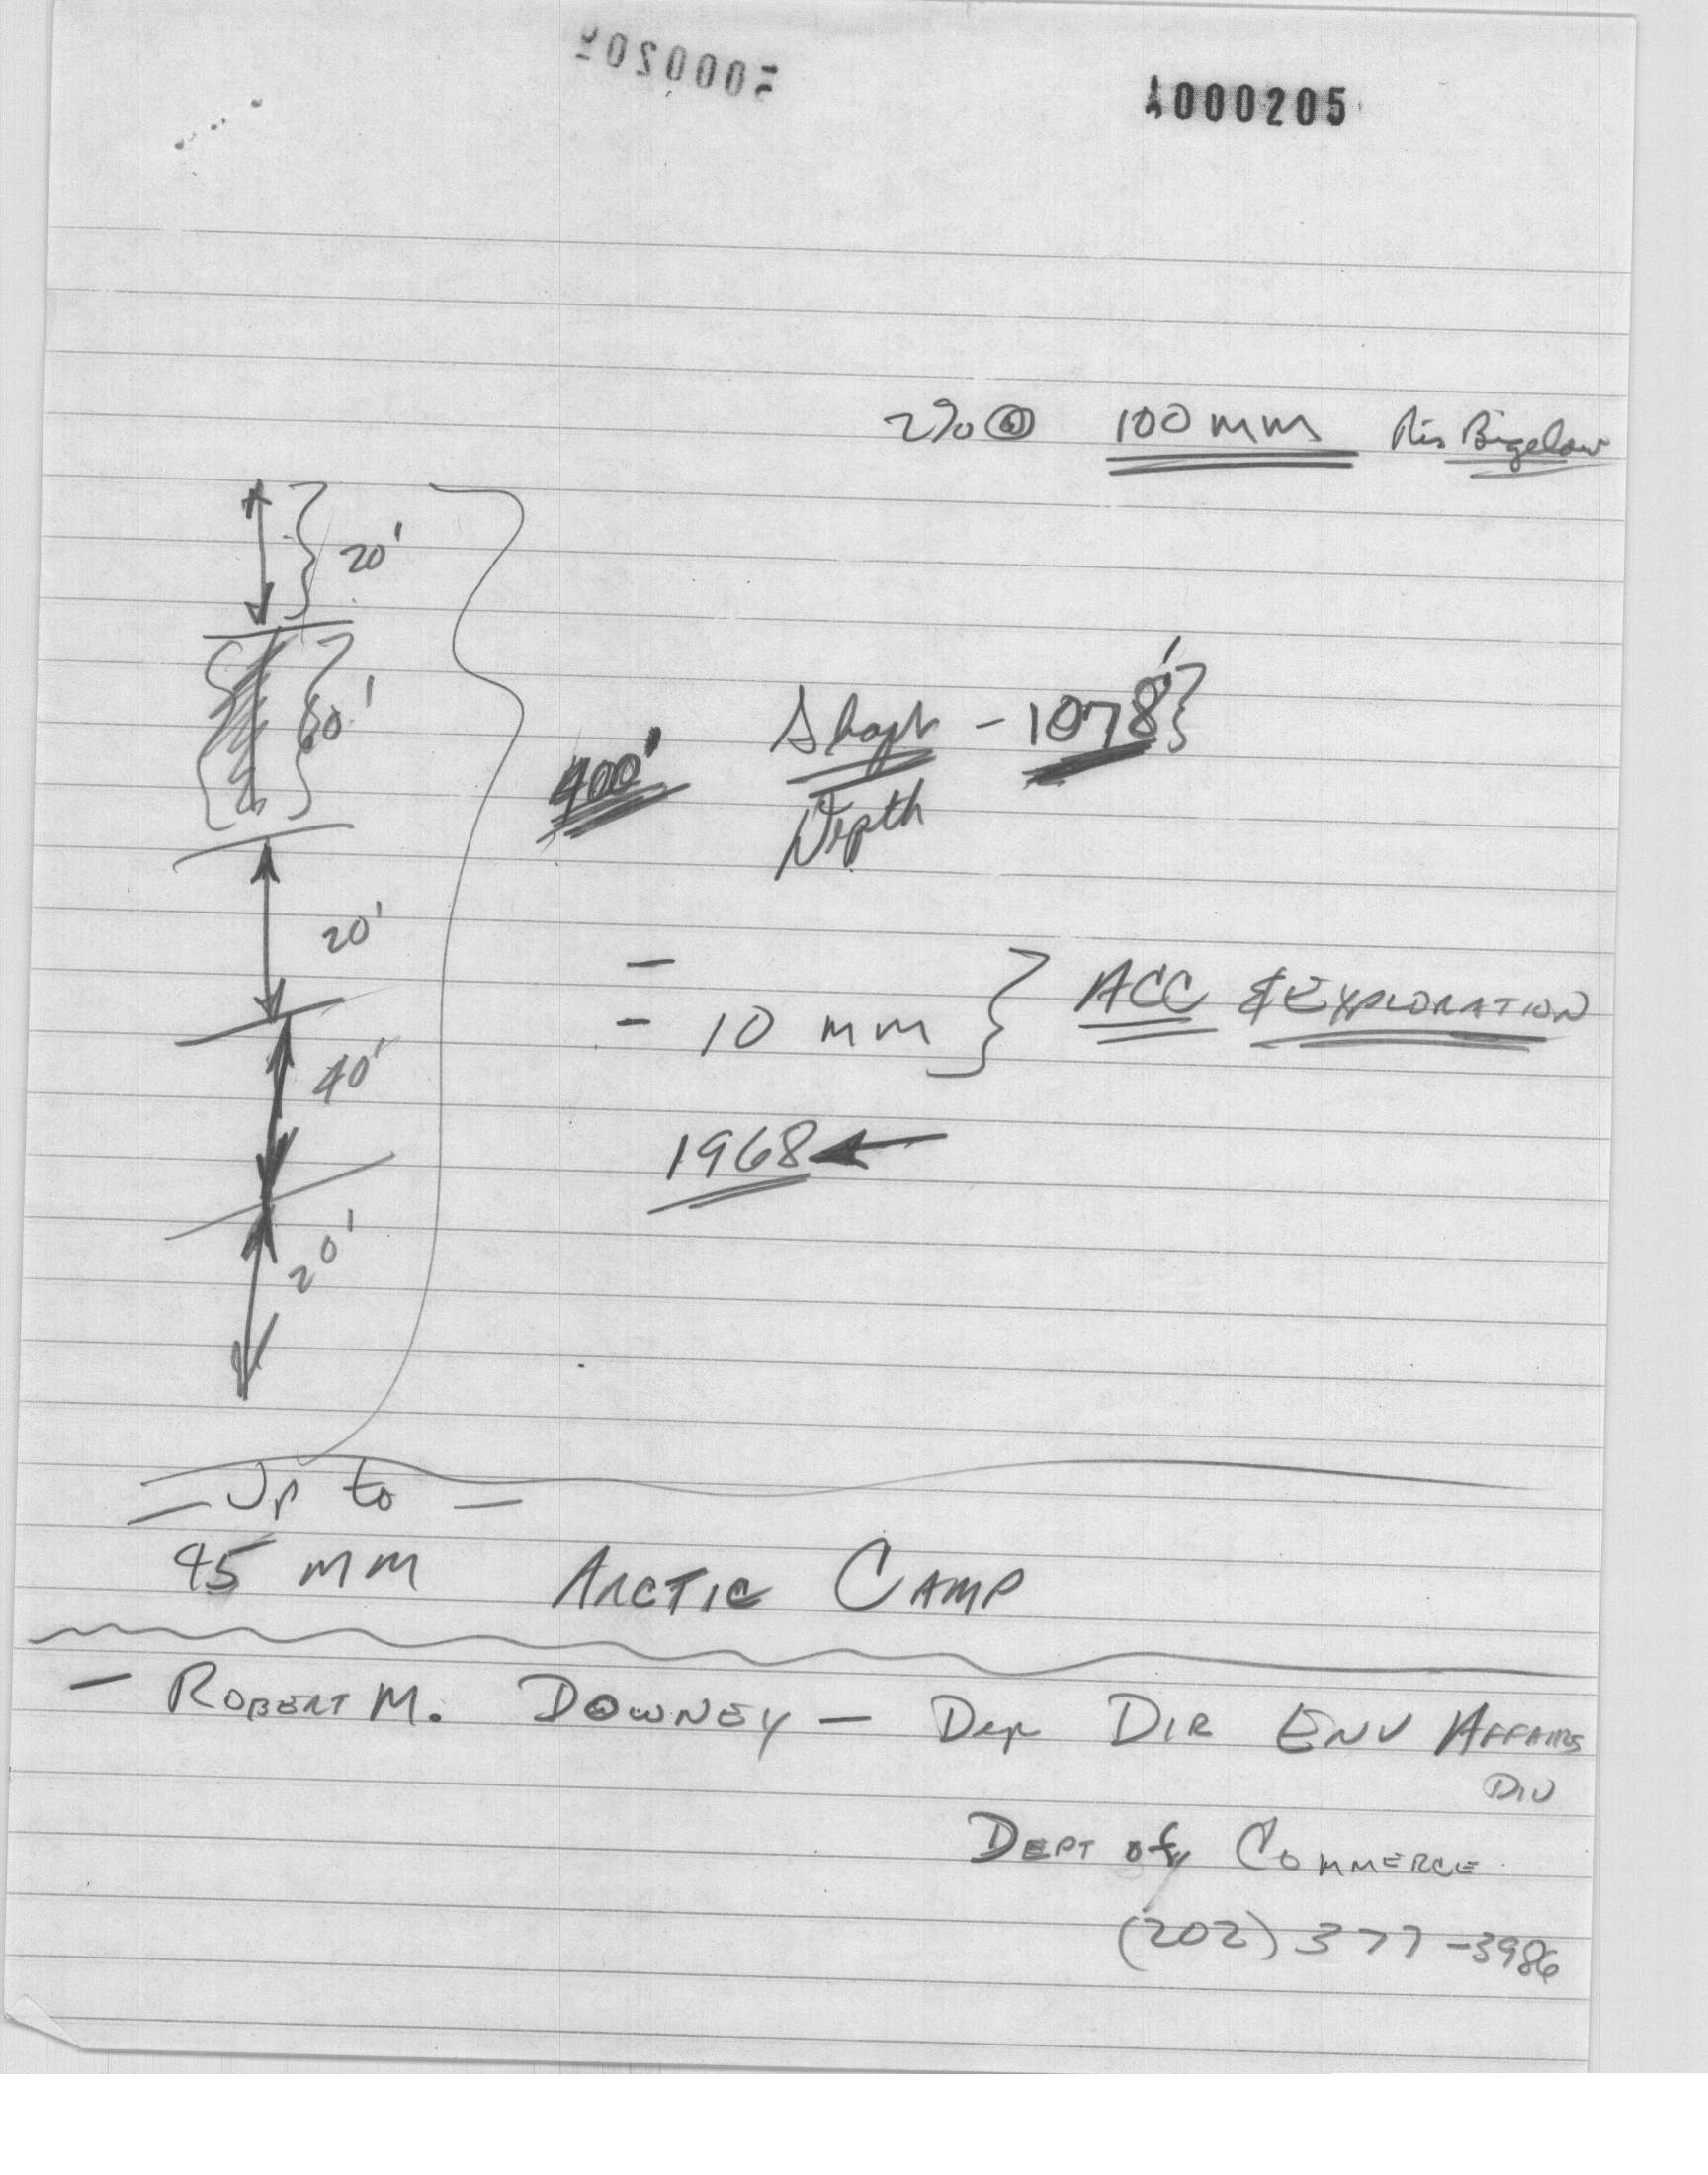 A000205
2% @ 100 mm Ris Bigelow
20'
60'
400'
Shaft - 1078'
Depth
20'
- 10 mm } ACC & EXPLORATION
40'
1968
20'
- Up to -
45 mm ARCTIC CAMP
- ROBERT M. DOWNEY - Dep DIR ENV AFFAIRS
DIV
DEPT of COMMERCE
(202) 377-3986